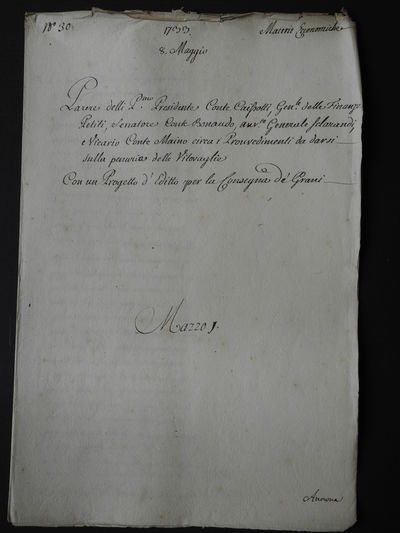 N.º 30. 1733 Materie Economiche
8. Maggio
Parere delli P.mo Presidente Conte Caissotti, Gen.le delle Finanze
Petiti, Senatore Conte Bonaudo, avv.to Generale Sclarandi,
e Vicario Conte Maino circa i Provvedimenti da darsi
sulla penuria delle Vitovaglie
Con un Progetto d'Editto per la Consegna de' Grani
Mazzo 1.
Annona